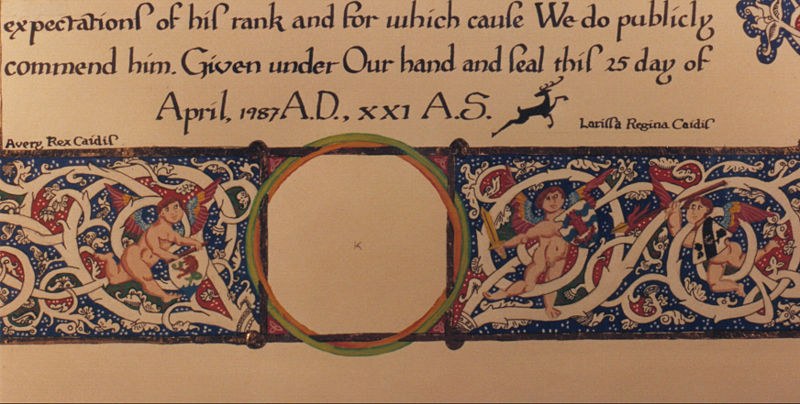 expectationſ of hiſ rank and for which cauſe We do publicly
commend him. Given under Our hand and ſeal thiſ 25 day of
April, 1987 A.D., XXI A.S.
Lariſſa Regina Caidiſ
Avery, Rex Caidiſ
K